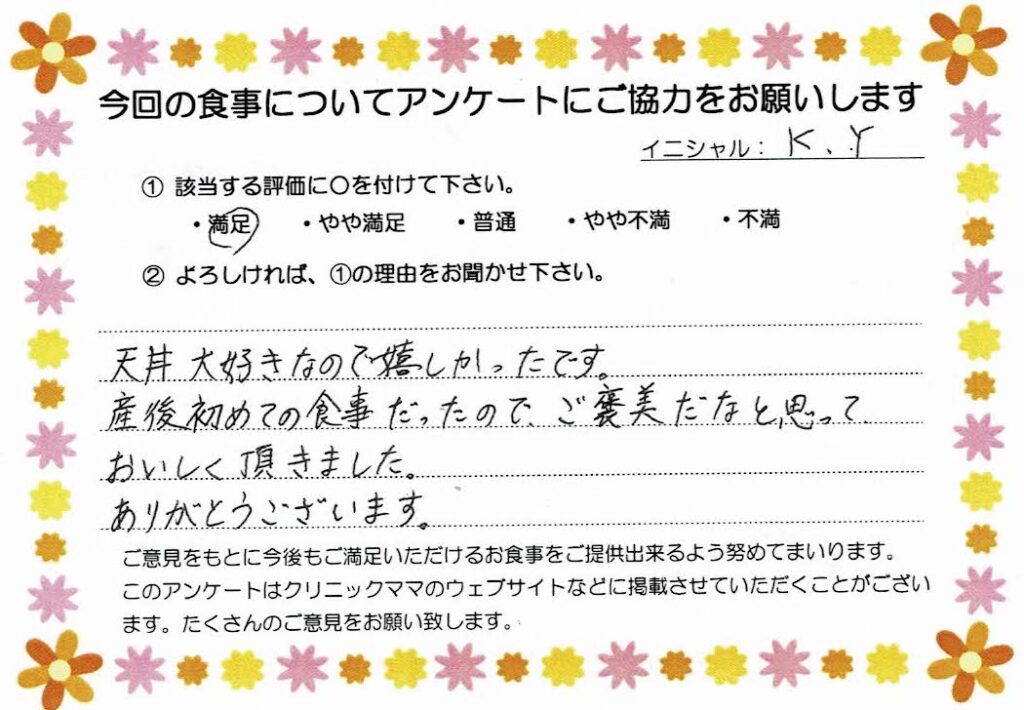 今回の食事についてアンケートにご協力をお願いします
イニシャル: K、Y
① 該当する評価に〇を付けて下さい。
・満足 ・やや満足 ・普通 ・やや不満 ・不満
② よろしければ、①の理由をお聞かせ下さい。
天丼 大好きなので嬉しかったです。
産後初めての食事だったので、ご褒美だなと思って、
おいしく頂きました。
ありがとうございます。
ご意見をもとに今後もご満足いただけるお食事をご提供出来るよう努めてまいります。
このアンケートはクリニックママのウェブサイトなどに掲載させていただくことがござい
ます。たくさんのご意見をお願い致します。